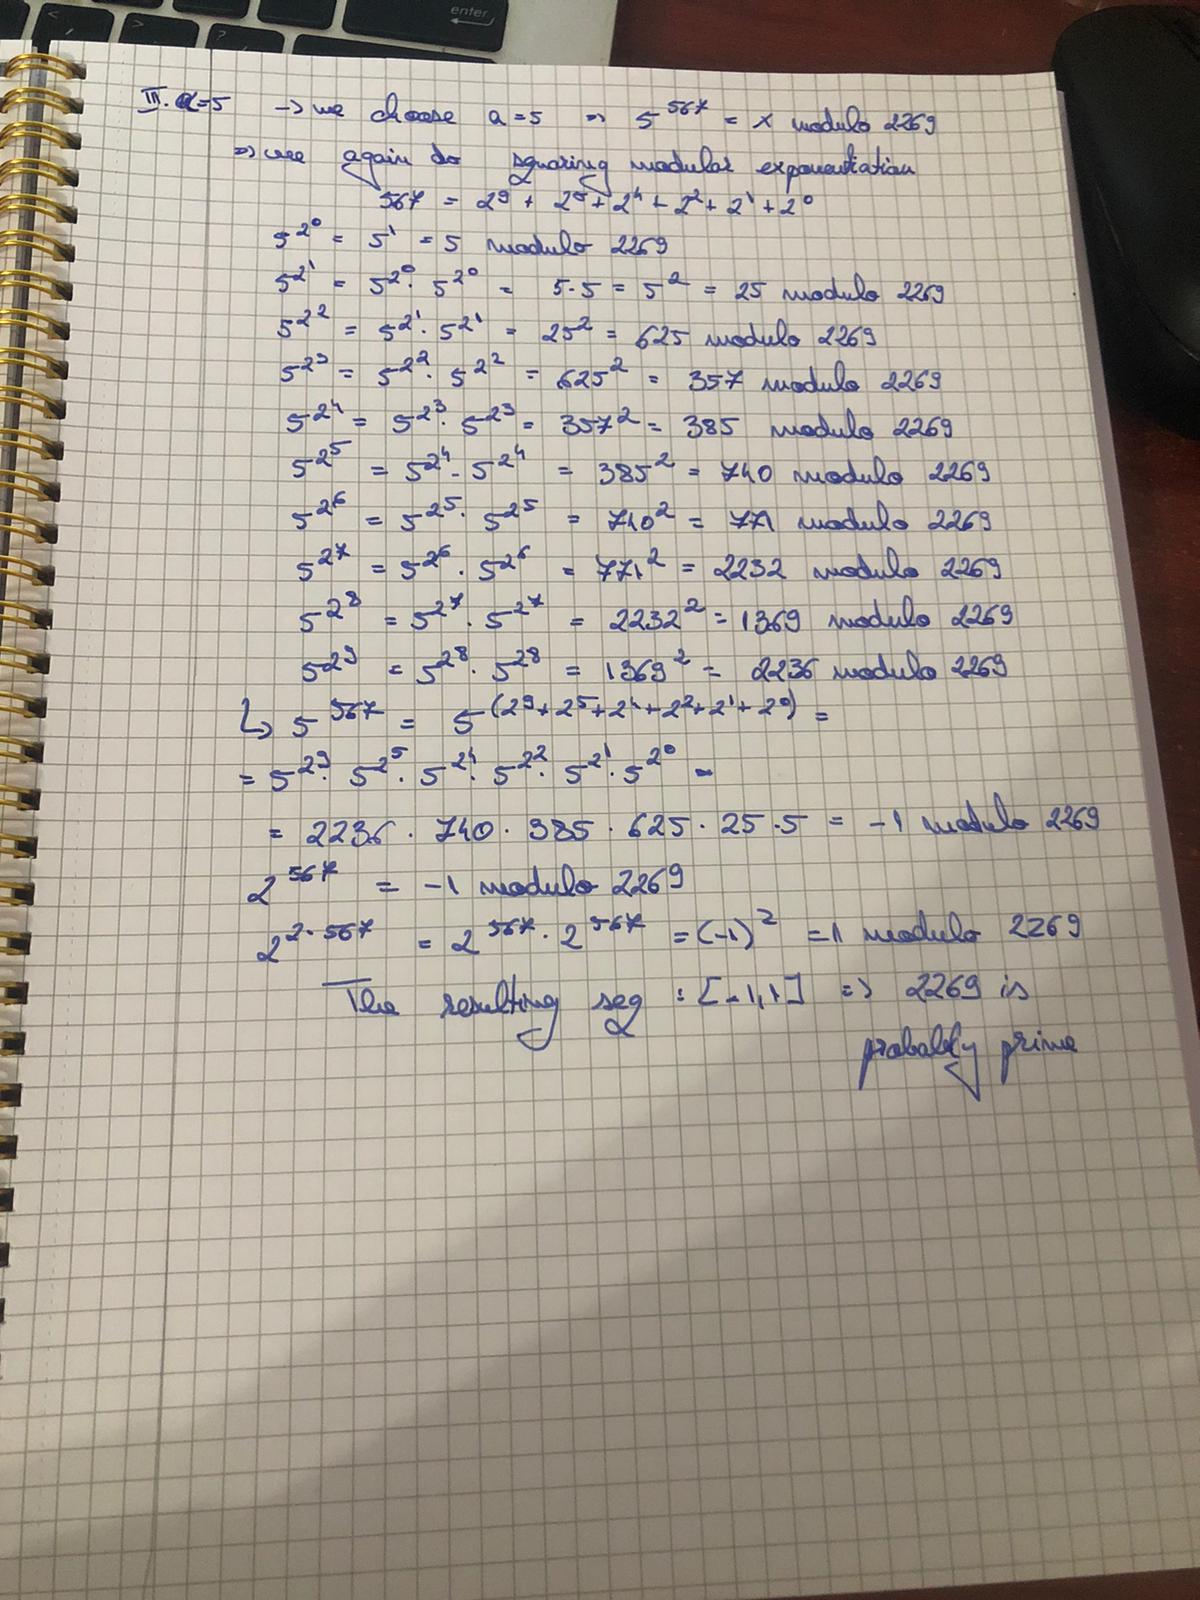 enter
III. a=5 → we choose a=5 ⇒ 5^567 = x modulo 2269
⇒ we again do squaring modular exponentiation
567 = 2^9 + 2^5 + 2^4 + 2^2 + 2^1 + 2^0
5^2^0 = 5^1 = 5 modulo 2269
5^2^1 = 5^2^0 · 5^2^0 = 5·5 = 5^2 = 25 modulo 2269
5^2^2 = 5^2^1 · 5^2^1 = 25^2 = 625 modulo 2269
5^2^3 = 5^2^2 · 5^2^2 = 625^2 = 357 modulo 2269
5^2^4 = 5^2^3 · 5^2^3 = 357^2 = 385 modulo 2269
5^2^5 = 5^2^4 · 5^2^4 = 385^2 = 740 modulo 2269
5^2^6 = 5^2^5 · 5^2^5 = 740^2 = 771 modulo 2269
5^2^7 = 5^2^6 · 5^2^6 = 771^2 = 2232 modulo 2269
5^2^8 = 5^2^7 · 5^2^7 = 2232^2 = 1369 modulo 2269
5^2^9 = 5^2^8 · 5^2^8 = 1369^2 = 2236 modulo 2269
↳ 5^567 = 5^(2^9+2^5+2^4+2^2+2^1+2^0) =
= 5^2^9 · 5^2^5 · 5^2^4 · 5^2^2 · 5^2^1 · 5^2^0 =
= 2236 · 740 · 385 · 625 · 25 · 5 = -1 modulo 2269
2^567 = -1 modulo 2269
2^2·567 = 2^567 · 2^567 = (-1)^2 = 1 modulo 2269
The resulting seq : [-1,1] ⇒ 2269 is
probably prime